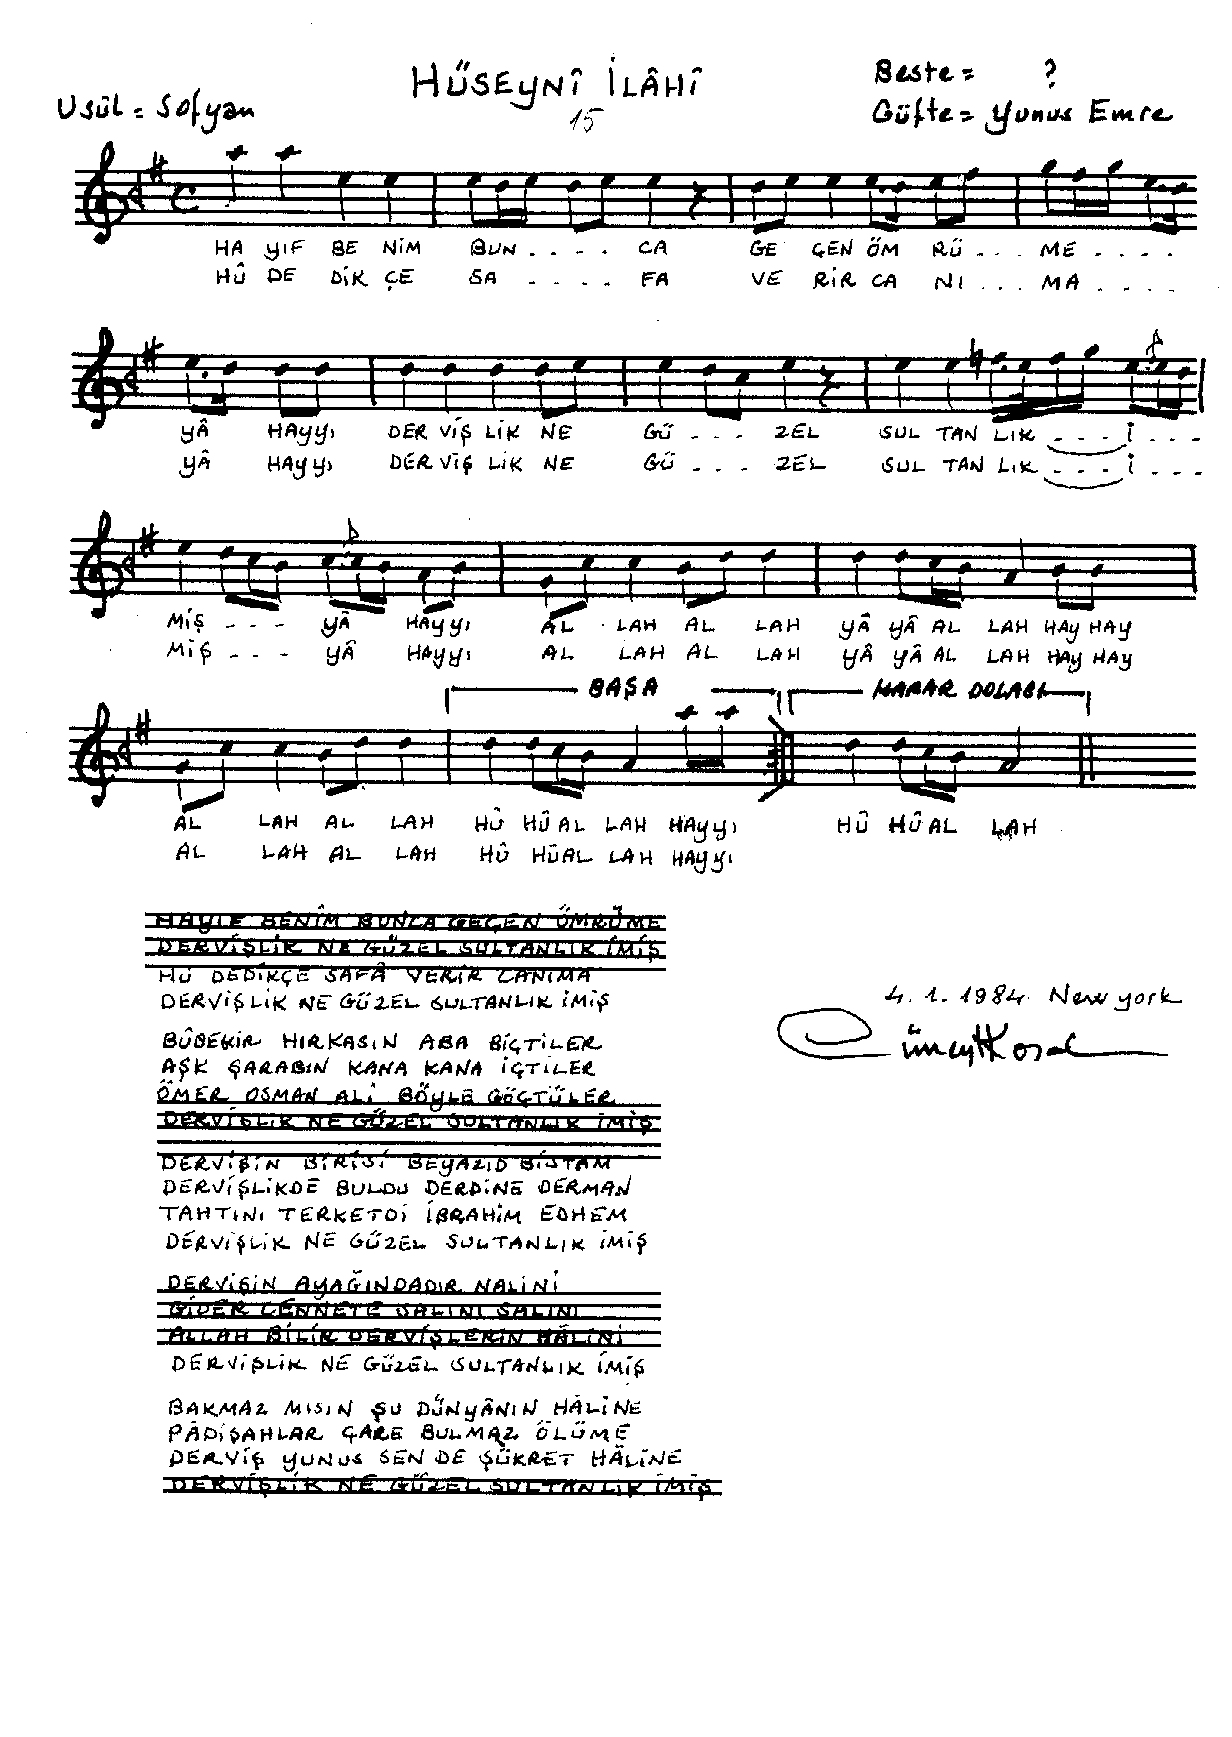 HÜSEYNÎ İLÂHÎ
15
Usûl = Sofyan
Beste = ?
Güfte = Yunus Emre
HA YIF BE NİM BUN .... CA GE ÇEN ÖM RÜ ... ME ....
HÛ DE DİK ÇE SA .... FA VE RİR CA NI ... MA ....
YÂ HAYYI DER VİŞ LİK NE GÜ ... ZEL SUL TAN LIK ... İ ...
YÂ HAYYI DER VİŞ LİK NE GÜ ... ZEL SUL TAN LIK ... İ ...
MİŞ ... YÂ HAYYI AL LAH AL LAH YÂ YÂ AL LAH HAY HAY
MİŞ ... YÂ HAYYI AL LAH AL LAH YÂ YÂ AL LAH HAY HAY
BAŞA KARAR DOLABI
AL LAH AL LAH HÛ HÛ AL LAH HAYYI HÛ HÛ AL LAH
AL LAH AL LAH HÛ HÛ AL LAH HAYYI
HAYIF BENİM BUNCA GEÇEN ÖMRÜME
DERVİŞLİK NE GÜZEL SULTANLIK İMİŞ
HÛ DEDİKÇE SAFÂ VERİR CANIMA
DERVİŞLİK NE GÜZEL SULTANLIK İMİŞ
BÛBEKİR HIRKASIN ABA BİÇTİLER
AŞK ŞARABIN KANA KANA İÇTİLER
ÖMER OSMAN ALİ BÖYLE GÖÇTÜLER
DERVİŞLİK NE GÜZEL SULTANLIK İMİŞ
DERVİŞİN BİRİSİ BEYAZID BİSTAM
DERVİŞLİKDE BULDU DERDİNE DERMAN
TAHTINI TERKETDİ İBRAHİM EDHEM
DERVİŞLİK NE GÜZEL SULTANLIK İMİŞ
DERVİŞİN AYAĞINDADIR NALİNİ
GİDER CENNETE SALINI SALINI
ALLAH BİLİR DERVİŞLERİN HÂLİNİ
DERVİŞLİK NE GÜZEL SULTANLIK İMİŞ
BAKMAZ MISIN ŞU DÜNYÂNIN HÂLİNE
PÂDİŞAHLAR ÇARE BULMAZ ÖLÜME
DERVİŞ YUNUS SEN DE ŞÜKRET HÂLİNE
DERVİŞLİK NE GÜZEL SULTANLIK İMİŞ
4.1.1984 New york
Cüneyt Kosal